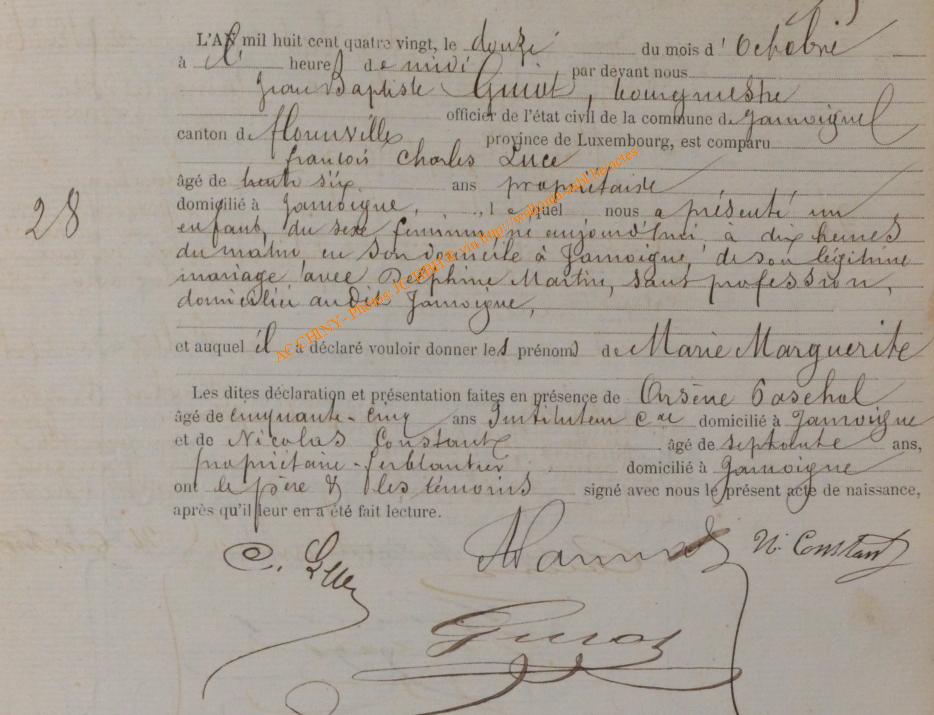 L'AN mil huit cent quatre vingt, le douze du mois d'Octobre
à heures de midi par devant nous
Jean Baptiste Guiot, bourgmestre
officier de l'état civil de la commune de Jamoigne
canton de Florenville province de Luxembourg, est comparu
françois Charles Luce
âgé de trente six ans propriétaire
domicilié à Jamoigne, lequel nous a présenté un
28
enfant, du sexe féminin né aujourd'hui, à dix heures
du matin, en son domicile à Jamoigne, de son légitime
mariage avec Delphine Martin, sans profession,
domiciliée audit Jamoigne,
et auquel il a déclaré vouloir donner les prénoms de Marie Marguerite
Les dites déclaration et présentation faites en présence de Arsène
âgé de cinquante-cinq ans Instituteur cal domicilié à Jamoigne
et de Nicolas Constant âgé de septante ans,
propriétaire-ferblantier domicilié à Jamoigne
ont le père & les témoins signé avec nous le présent acte de naissance,
après qu'il leur en a été fait lecture.
AC CHINY - Photos via http://
C. Luce N. Constant
Guiot